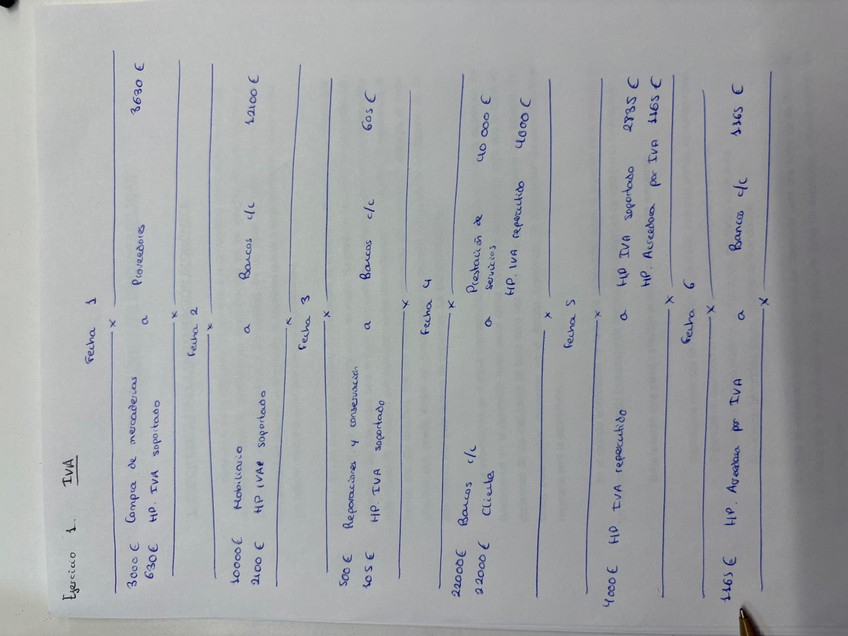 Ejercicio 1. IVA
Fecha 1
x
3000 € Compra de mercaderias
630 € HP. IVA soportado a Proveedores 3630 €
x
Fecha 2
x
10000 € Mobiliario
2100 € HP IVA soportado a Bancos c/c 12100 €
x
Fecha 3
x
500 € Reparaciones y conservación
105 € HP. IVA soportado a Bancos c/c 605 €
x
Fecha 4
x
22000 € Bancos c/c
22000 € Cliente a Prestación de servicios 40 000 €
HP. IVA repercutido 4000 €
x
Fecha 5
x
4000 € HP IVA repercutido a HP IVA soportado 2835 €
HP. Acreedora por IVA 1165 €
x
Fecha 6
x
1165 € HP. Acreedora por IVA a Bancos c/c 1165 €
x